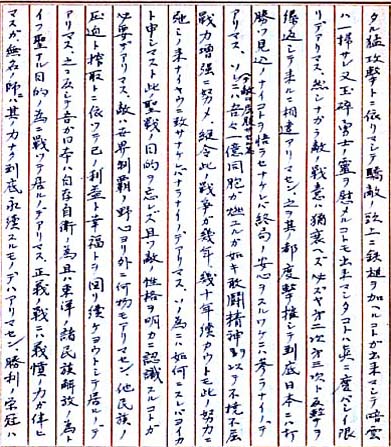 タル猛攻撃ニ依リマシテ驕敵ノ頭上ニ鉄槌ヲ加ヘルコトガ出来マシテ暗雲
ハ一掃サレ又玉砕勇士ノ霊ヲ慰メルコトモ出来マシタコトハ真ニ慶ベシキ限
リデアリマス、然シナガラ敵ノ戦意ハ猶衰ヘズ必ズヤ第二次第三次ト反撃ヲ
繰返シテ来ルニ相違アリマセン、之ヲ其ノ都度撃摧シテ到底日本ニハ打
勝ツ見込ノナイコトヲ悟ラセナケレバ終局ノ安心ヲスルワケニハ参ラナイノデ
アリマス、ソレニハ吾々一億同胞ガ燃エルガ如キ敢闘精神ヲ以テ不撓不屈
戦力増強ニ努メ縦令此ノ戦争ガ幾年、幾十年続カウトモ此ノ努力ニ
弛ミノ来ナイヤウニ致サナケレバナラナイノデアリマス、ソノ為ニハ如何ニスレバヨイカ
ト申シマスト此ノ聖戦ノ目的ヲ忘レズ且ツ敵ノ性格ヲ明カニ認識スルコトガ
必要デアリマス、敵ハ世界制覇ノ野心ヨリ外ニ何物モアリマセン、他民族ノ
圧迫ト搾取トニ依ツテ己ノ利益ト幸福トヲ図リ続ケヨウトシテ居ルノデ
アリマス、之ニ反シテ吾ガ日本ハ自存自衛ノ為且ツ東洋ノ諸民族解放ノ為ト
イフ聖ナル目的ノ為ニ戦ツテ居ルノデアリマス、正義ノ戦ニハ ノ力ガ伴ヒ
マスガ無名ノ師ハ其ノ力ナク到底永続スルモノデハアリマセン、勝利ノ栄冠ハ